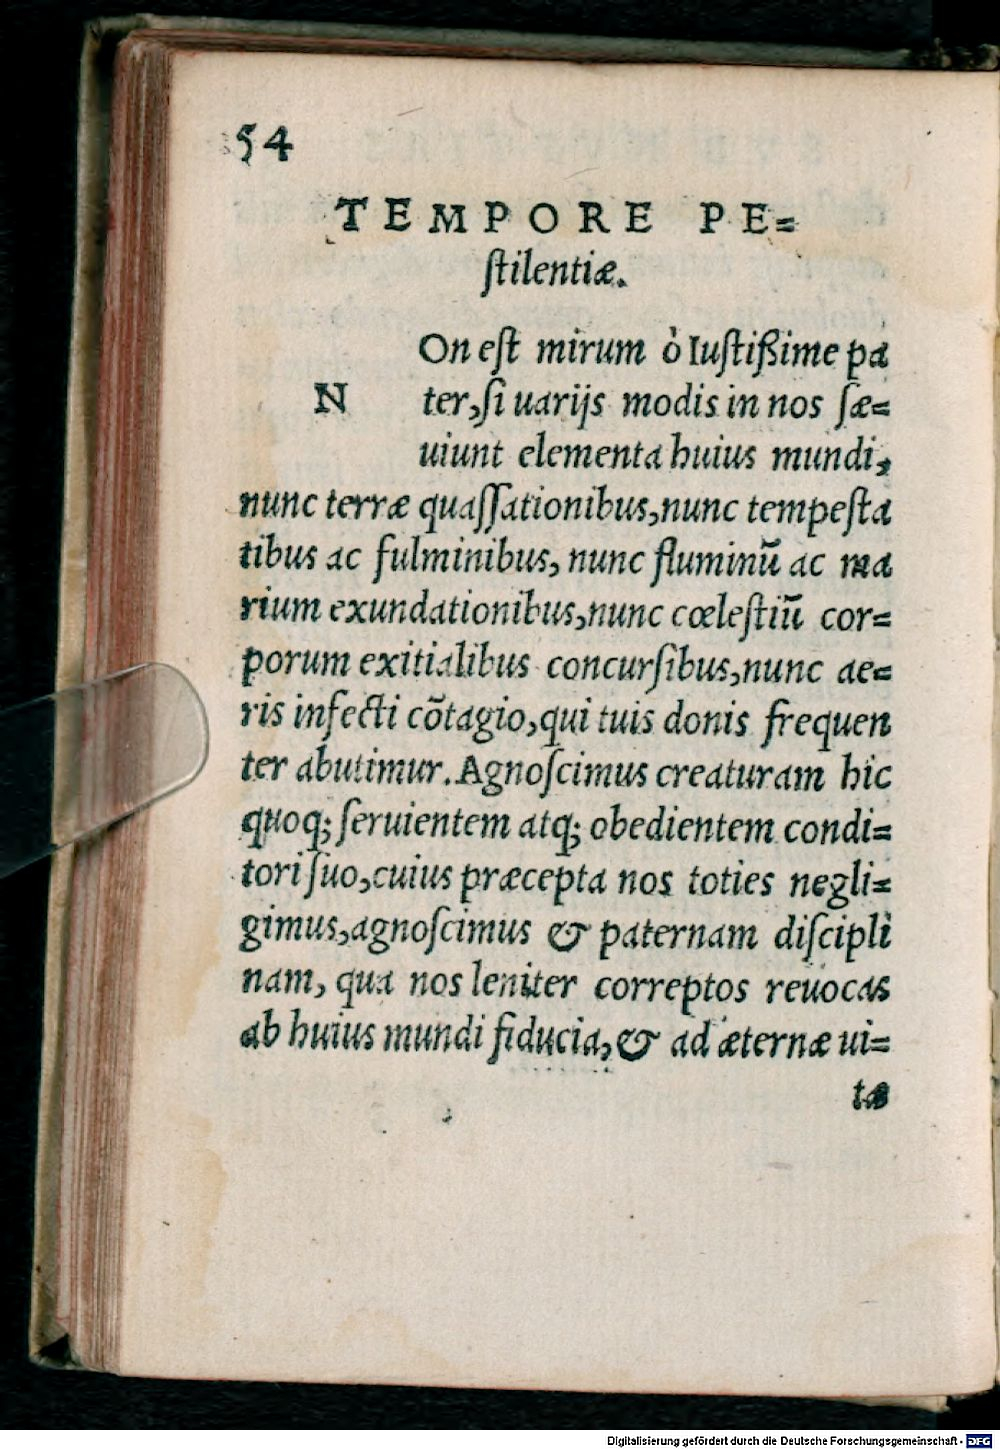 54
TEMPORE PE=
ſtilentiæ.
NOn eſt mirum ò Iuſtiſsime pa
ter,ſi uarijs modis in nos ſæ=
uiunt elementa huius mundi,
nunc terræ quaſſationibus,nunc tempeſta
tibus ac fulminibus, nunc fluminū ac ma
rium exundationibus,nunc cœleſtiū cor=
porum exitialibus concurſibus,nunc ae=
ris infecti cōtagio,qui tuis donis frequen
ter abutimur. Agnoſcimus creaturam hic
quoq; ſeruientem atq; obedientem condi=
tori ſuo,cuius præcepta nos toties negli=
gimus,agnoſcimus & paternam diſcipli
nam, qua nos leniter correptos reuocas
ab huius mundi fiducia,& ad æternæ ui=
tæ
Digitalisierung gefördert durch die Deutsche Forschungsgemeinschaft - DFG